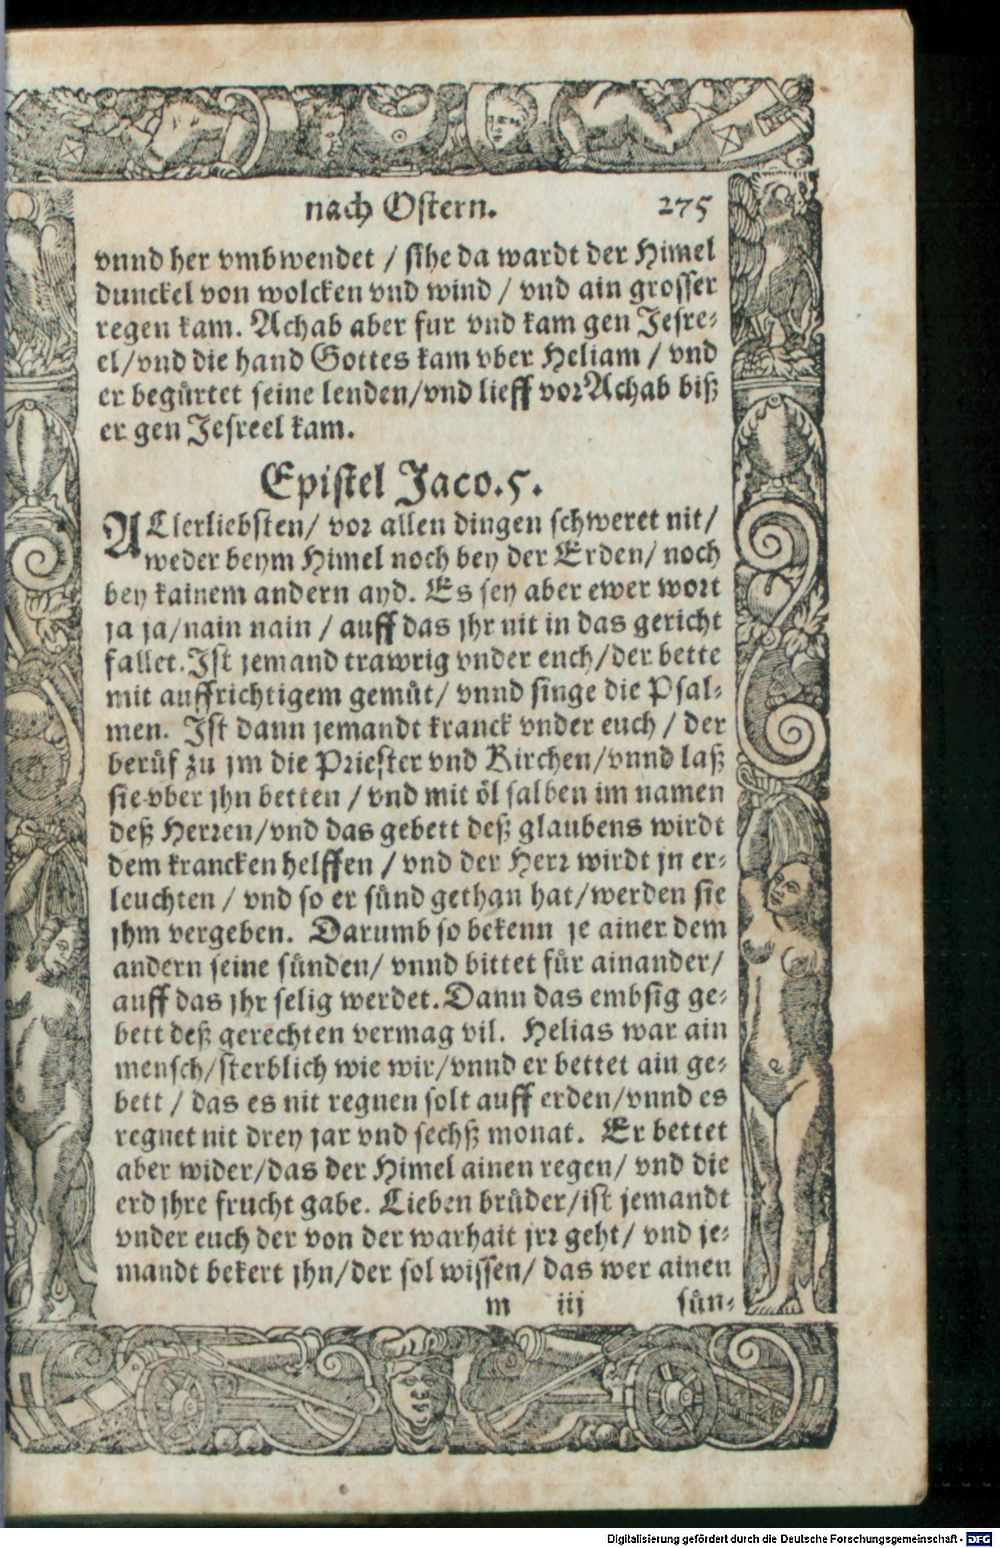 nach Ostern. 275
vnnd her vmbwendet / sihe da wardt der Himel
dunckel von wolcken vnd wind / vnd ain grosser
regen kam. Achab aber fur vnd kam gen Jesre-
el/vnd die hand Gottes kam vber Heliam / vnd
er begürtet seine lenden/vnd lieff vor Achab biß
er gen Jesreel kam.
Epistel Jaco.5.
ALlerliebsten/ vor allen dingen schweret nit/
weder beym Himel noch bey der Erden/ noch
bey kainem andern ayd. Es sey aber ewer wort
ja ja/nain nain / auff das jhr nit in das gericht
fallet. Ist jemand trawrig vnder euch/der bette
mit auffrichtigem gemüt/ vnnd singe die Psal-
men. Ist dann jemandt kranck vnder euch / der
berüf zu jm die Priester vnd Kirchen/vnnd laß
sie vber jhn betten / vnd mit öl salben im namen
deß Herren/vnd das gebett deß glaubens wirdt
dem krancken helffen / vnd der Herr wirdt jn er-
leuchten / vnd so er sünd gethan hat/werden sie
jhm vergeben. Darumb so bekenn je ainer dem
andern seine sünden/ vnnd bittet für ainander/
auff das jhr selig werdet. Dann das embsig ge-
bett deß gerechten vermag vil. Helias war ain
mensch/sterblich wie wir/vnnd er bettet ain ge-
bett / das es nit regnen solt auff erden/vnnd es
regnet nit drey jar vnd sechß monat. Er bettet
aber wider/das der Himel ainen regen/ vnd die
erd jhre frucht gabe. Lieben brüder/ist jemandt
vnder euch der von der warhait jrr geht/ vnd je-
mandt bekert jhn/der sol wissen/ das wer ainen
m iij sün-
Digitalisierung gefördert durch die Deutsche Forschungsgemeinschaft - DFG